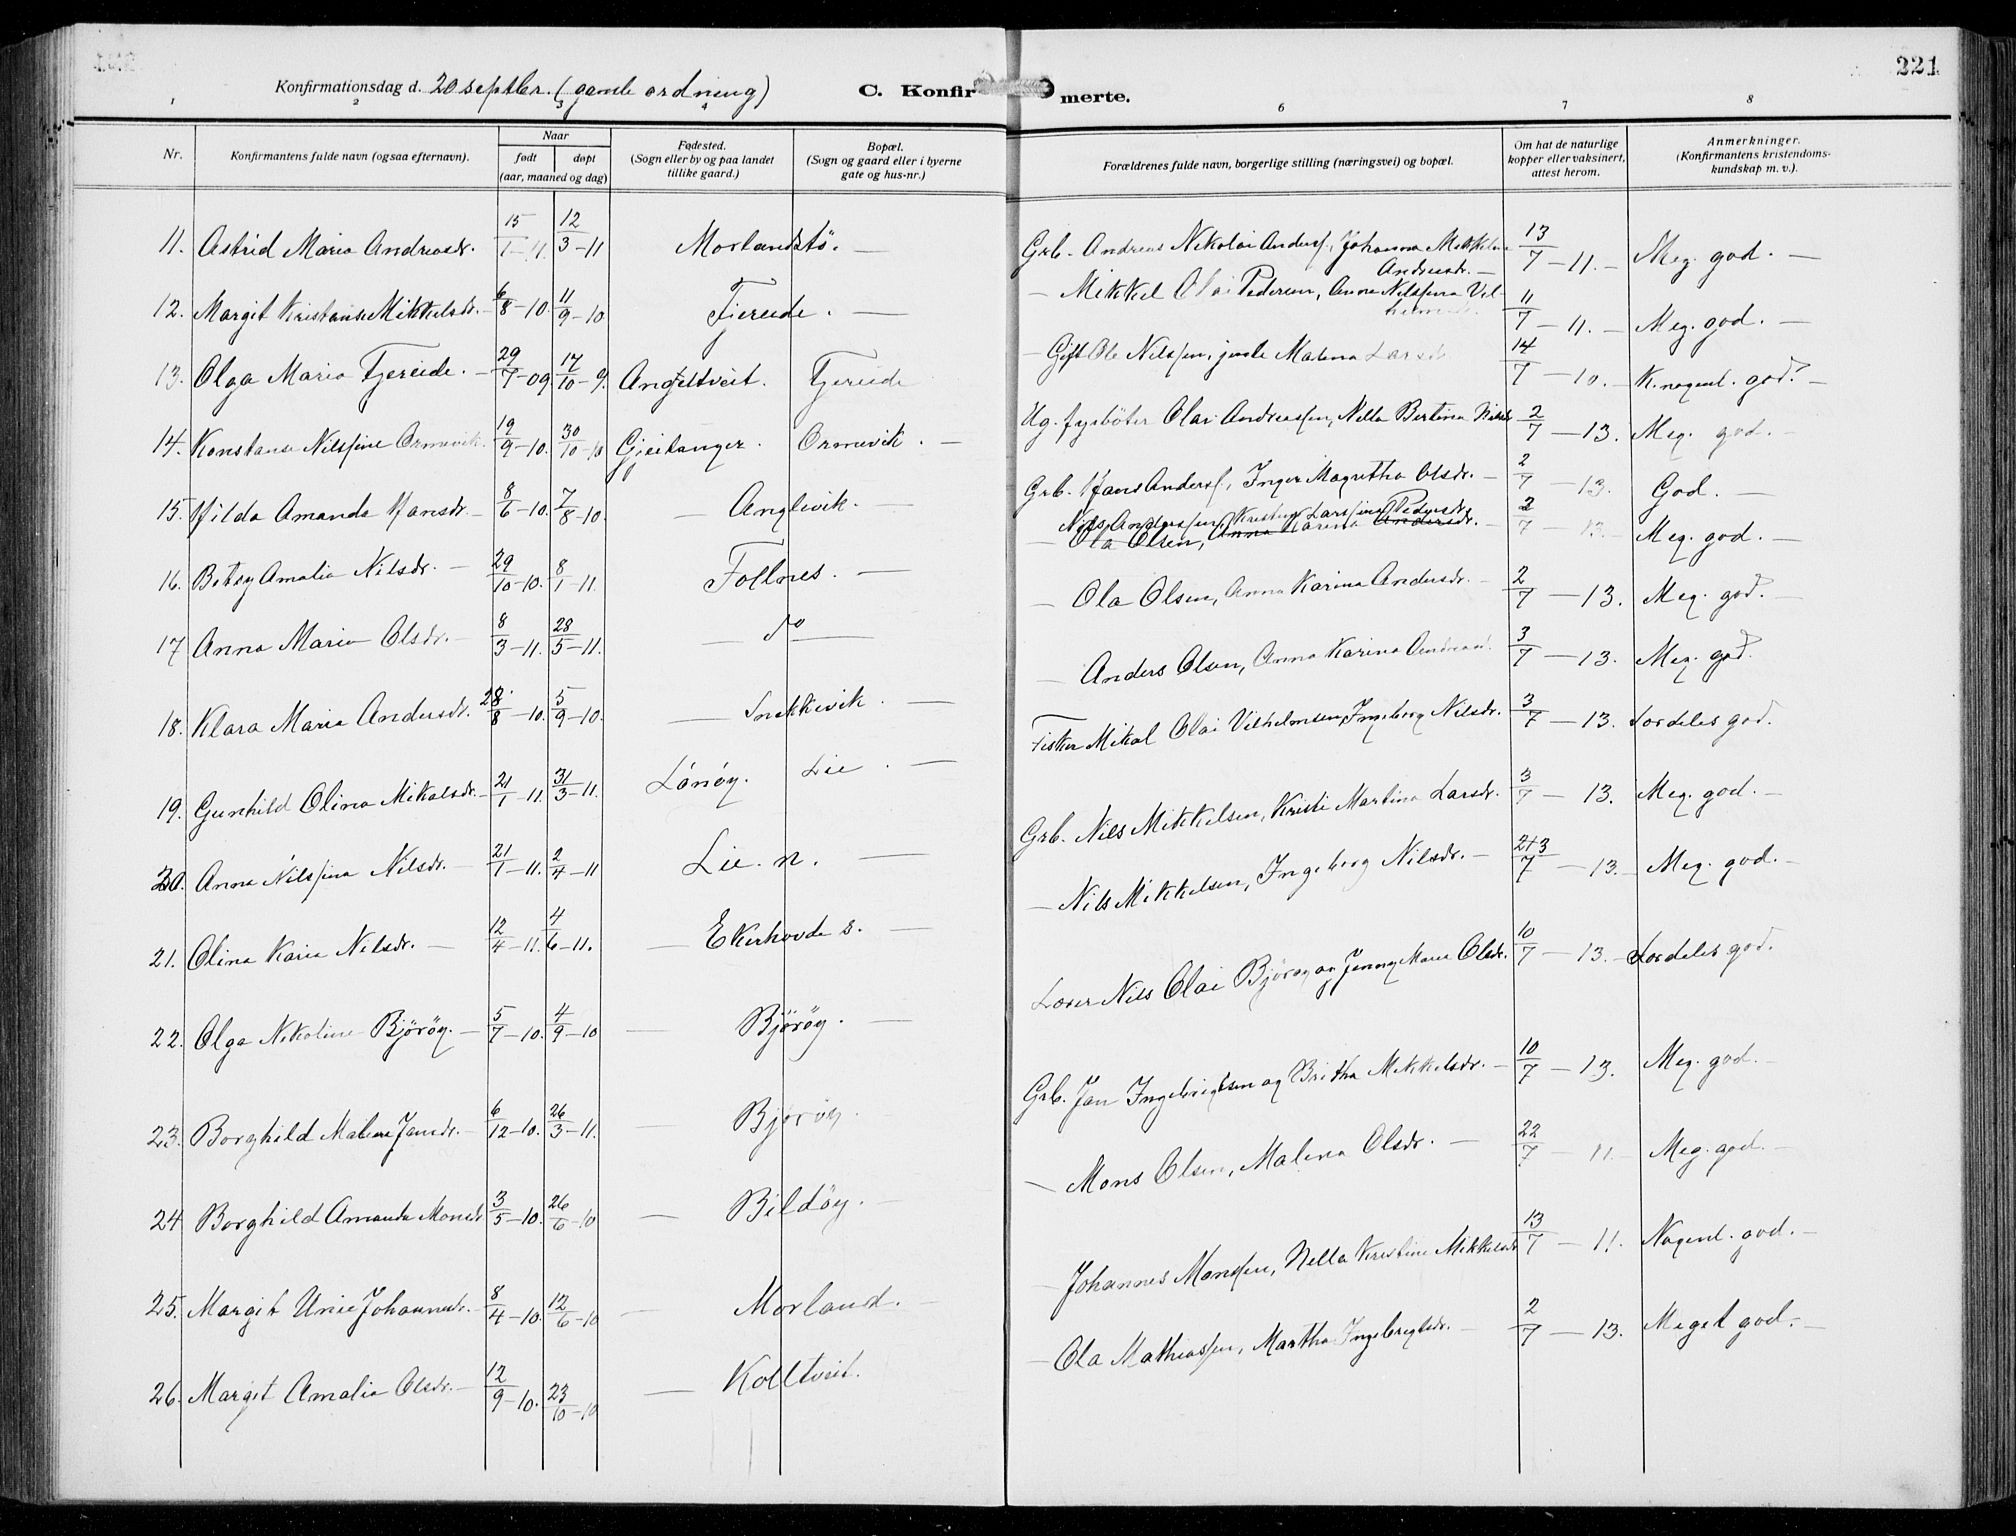 221
Konfirmationsdag d. 20 septbr. (gamle ordning)
C. Konfirmerte.
1 2 3 4 6 7 8
Nr. Konfirmantens fulde navn (ogsaa efternavn). Naar født døpt (aar, maaned og dag) Fødested. (Sogn eller by og paa landet tillike gaard.) Bopæl. (Sogn og gaard eller i byerne gate og hus-nr.) Forældrenes fulde navn, borgerlige stilling (næringsvei) og bopæl. Om hat de naturlige kopper eller vaksinert, attest herom. Anmerkninger. (Konfirmantens kristendoms-kundskap m. v.).
11. Astrid Maria Andreasdr. 15/1-11. 12/3-11 Morlandstø. — Grb. Andreas Nikolai Anders., Johanna Mikkeline Andreasdr. — 13/7-11. — Meg. god. —
12. Margit Kristanse Mikkelsdr. 6/8-10. 11/9-10 Tjereide. — — Mikkel Olai Pedersen, Anna Nilssina Vilhelmsdr. 11/7-11. — Meg. god. —
13. Olga Maria Tjereide. — 29/7-09 17/10-9. Angeltveit. Tjereide — Gift Ole Nilssen, Malena Larsd 14/7-10. — K. nogenl. god. —
14. Konstanse Nilssine Ormevik. 19/9-10. 30/10-10 Gjeitanger. Ormevik. — Ug. fyrbøter Olai Andreassen, Nella Bertina Nilsdr 2/7-13. Meg. god. —
15. Hilda Amanda Hansdr. — 8/6-10. 7/8-10. — Anglevik. — Grb. Hans Anders., Inger Magretha Olsdr. — 2/7-13. God. —
16. Betsy Amalia Nilsdr. — 29/10-10. 8/1-11. Follnes. — Nils Anderssen, Kristine Larssine Pedersdr.
— Ola Olsen, Anna Karina Andersdr. — 2/7-13. — Meg. god. —
17 Anna Maria Olsdr. — 8/3-11. 28/5-11. — do — — Ola Olsen, Anna Karina Andersdr. — 2/7-13. Meg. god. —
18. Klara Maria Andersdr. 28/8-10. 5/9-10. — Snekkevik. — — Anders Olsen, Anna Karina Andreasd. 3/7-13. Meg. god.
19. Gunhild Olina Mikalsdr. — 21/1-11. 31/3-11. Lønøy. Lie. — Fisker Mikal Olai Vilhelmsen, Ingeborg Nilsdr. 3/7-13. Særdeles god.
20. Anna Nilssina Nilsdr. — 21/1-11. 2/4-11 Lie. n. — Grb. Nils Mikkelsen, Kristi Martina Larsdr. 3/7-13. Meg. god. —
21. Olina Karia Nilsdr. — 12/4-11. 4/6-11. — Ekerhovde s. — — Nils Mikkelsen, Ingeborg Nilsdr. — 2+3/7-13. — Meg. god. —
22. Olga Nikoline Bjørøy. — 5/7-10. 4/9-10 — Bjørøy. — Lærer Nils Olai Bjørøy og Jenny Marie Olsdr. 10/7-13. — Særdeles god.
23. Borghild Malene Jansdr. — 6/12-10. 26/3-11. — Bjørøy. Grb. Jan Ingebrigtsen og Britha Mikkelsdr. — 10/7-13. Meg. god. —
24 Borghild Amanda Monsdr 3/5-10. 26/6-10 — Bildøy. — — Mons Olsen, Malena Olsdr. — 22/7-11. — Meg. god. —
25. Margit Unie Johannesdr. — 8/4-10. 12/6-10 — Morland. — — Johannes Monssen, Nella Kristine Mikkelsdr 13/7-11. Nogenl. god. —
26. Margit Amalia Olsdr. — 12/9-10. 23/10-10 — Kolltveit. — Ola Mathiassen, Martha Ingebrigtsdr. — 2/7-13. Meget god. —